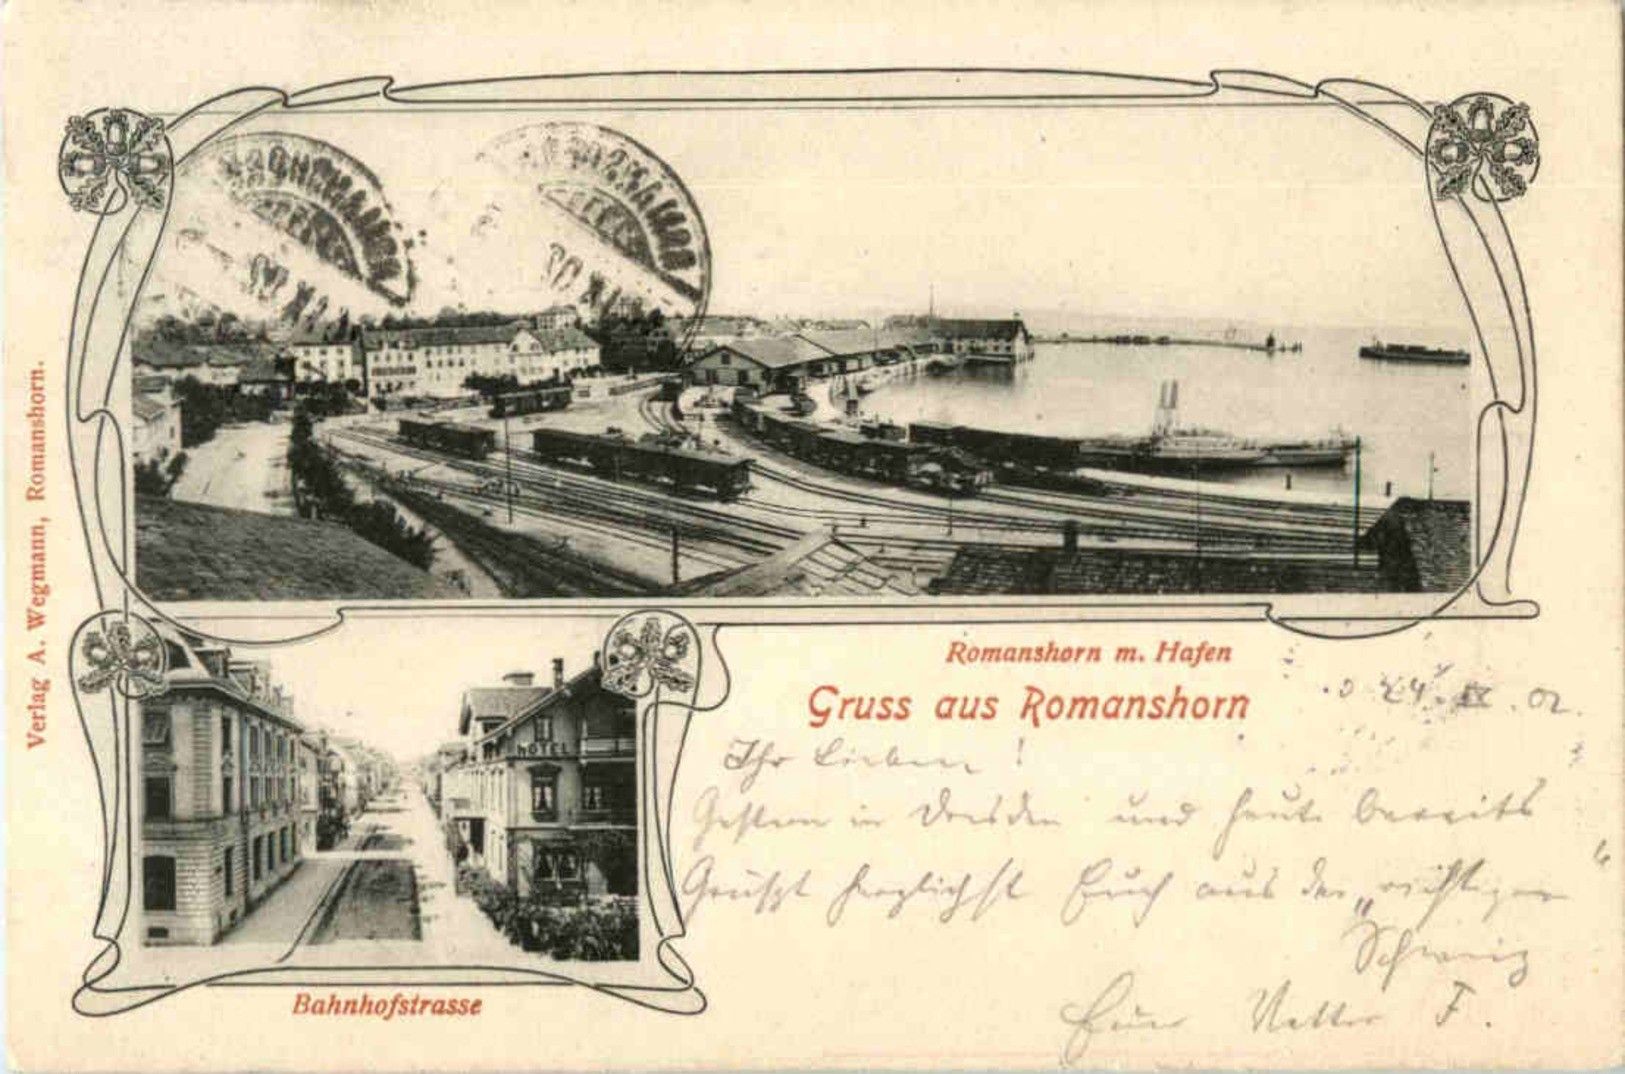 Romanshorn m. Hafen
Gruss aus Romanshorn
24. IX. 02.
Ihr Lieben!
Gestern in Dresden und heute bereits
Grüßt herzlichst Euch aus der „richtigen“
Schweiz
Euer Vetter F.
HOTEL
Bahnhofstrasse
Verlag A. Wegmann, Romanshorn.